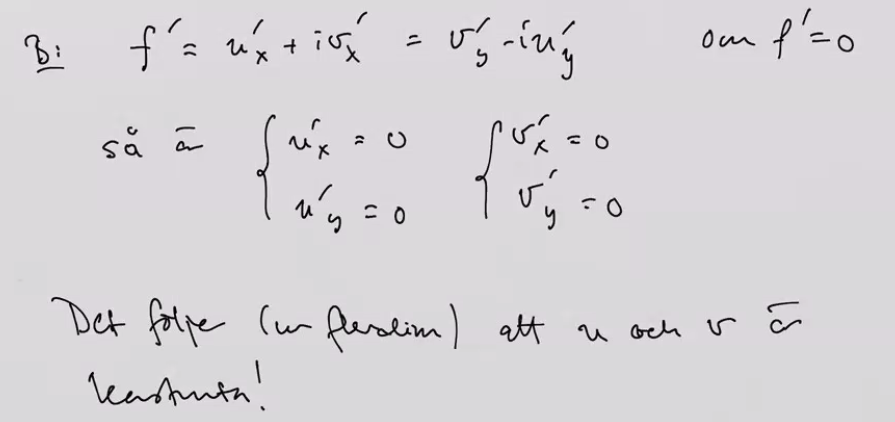 B: f' = u'x + iv'x = v'y - iu'y om f' = 0
så är { u'x = 0 { v'x = 0
u'y = 0 v'y = 0
Det följer (ur flerdim) att u och v är
konstanta!